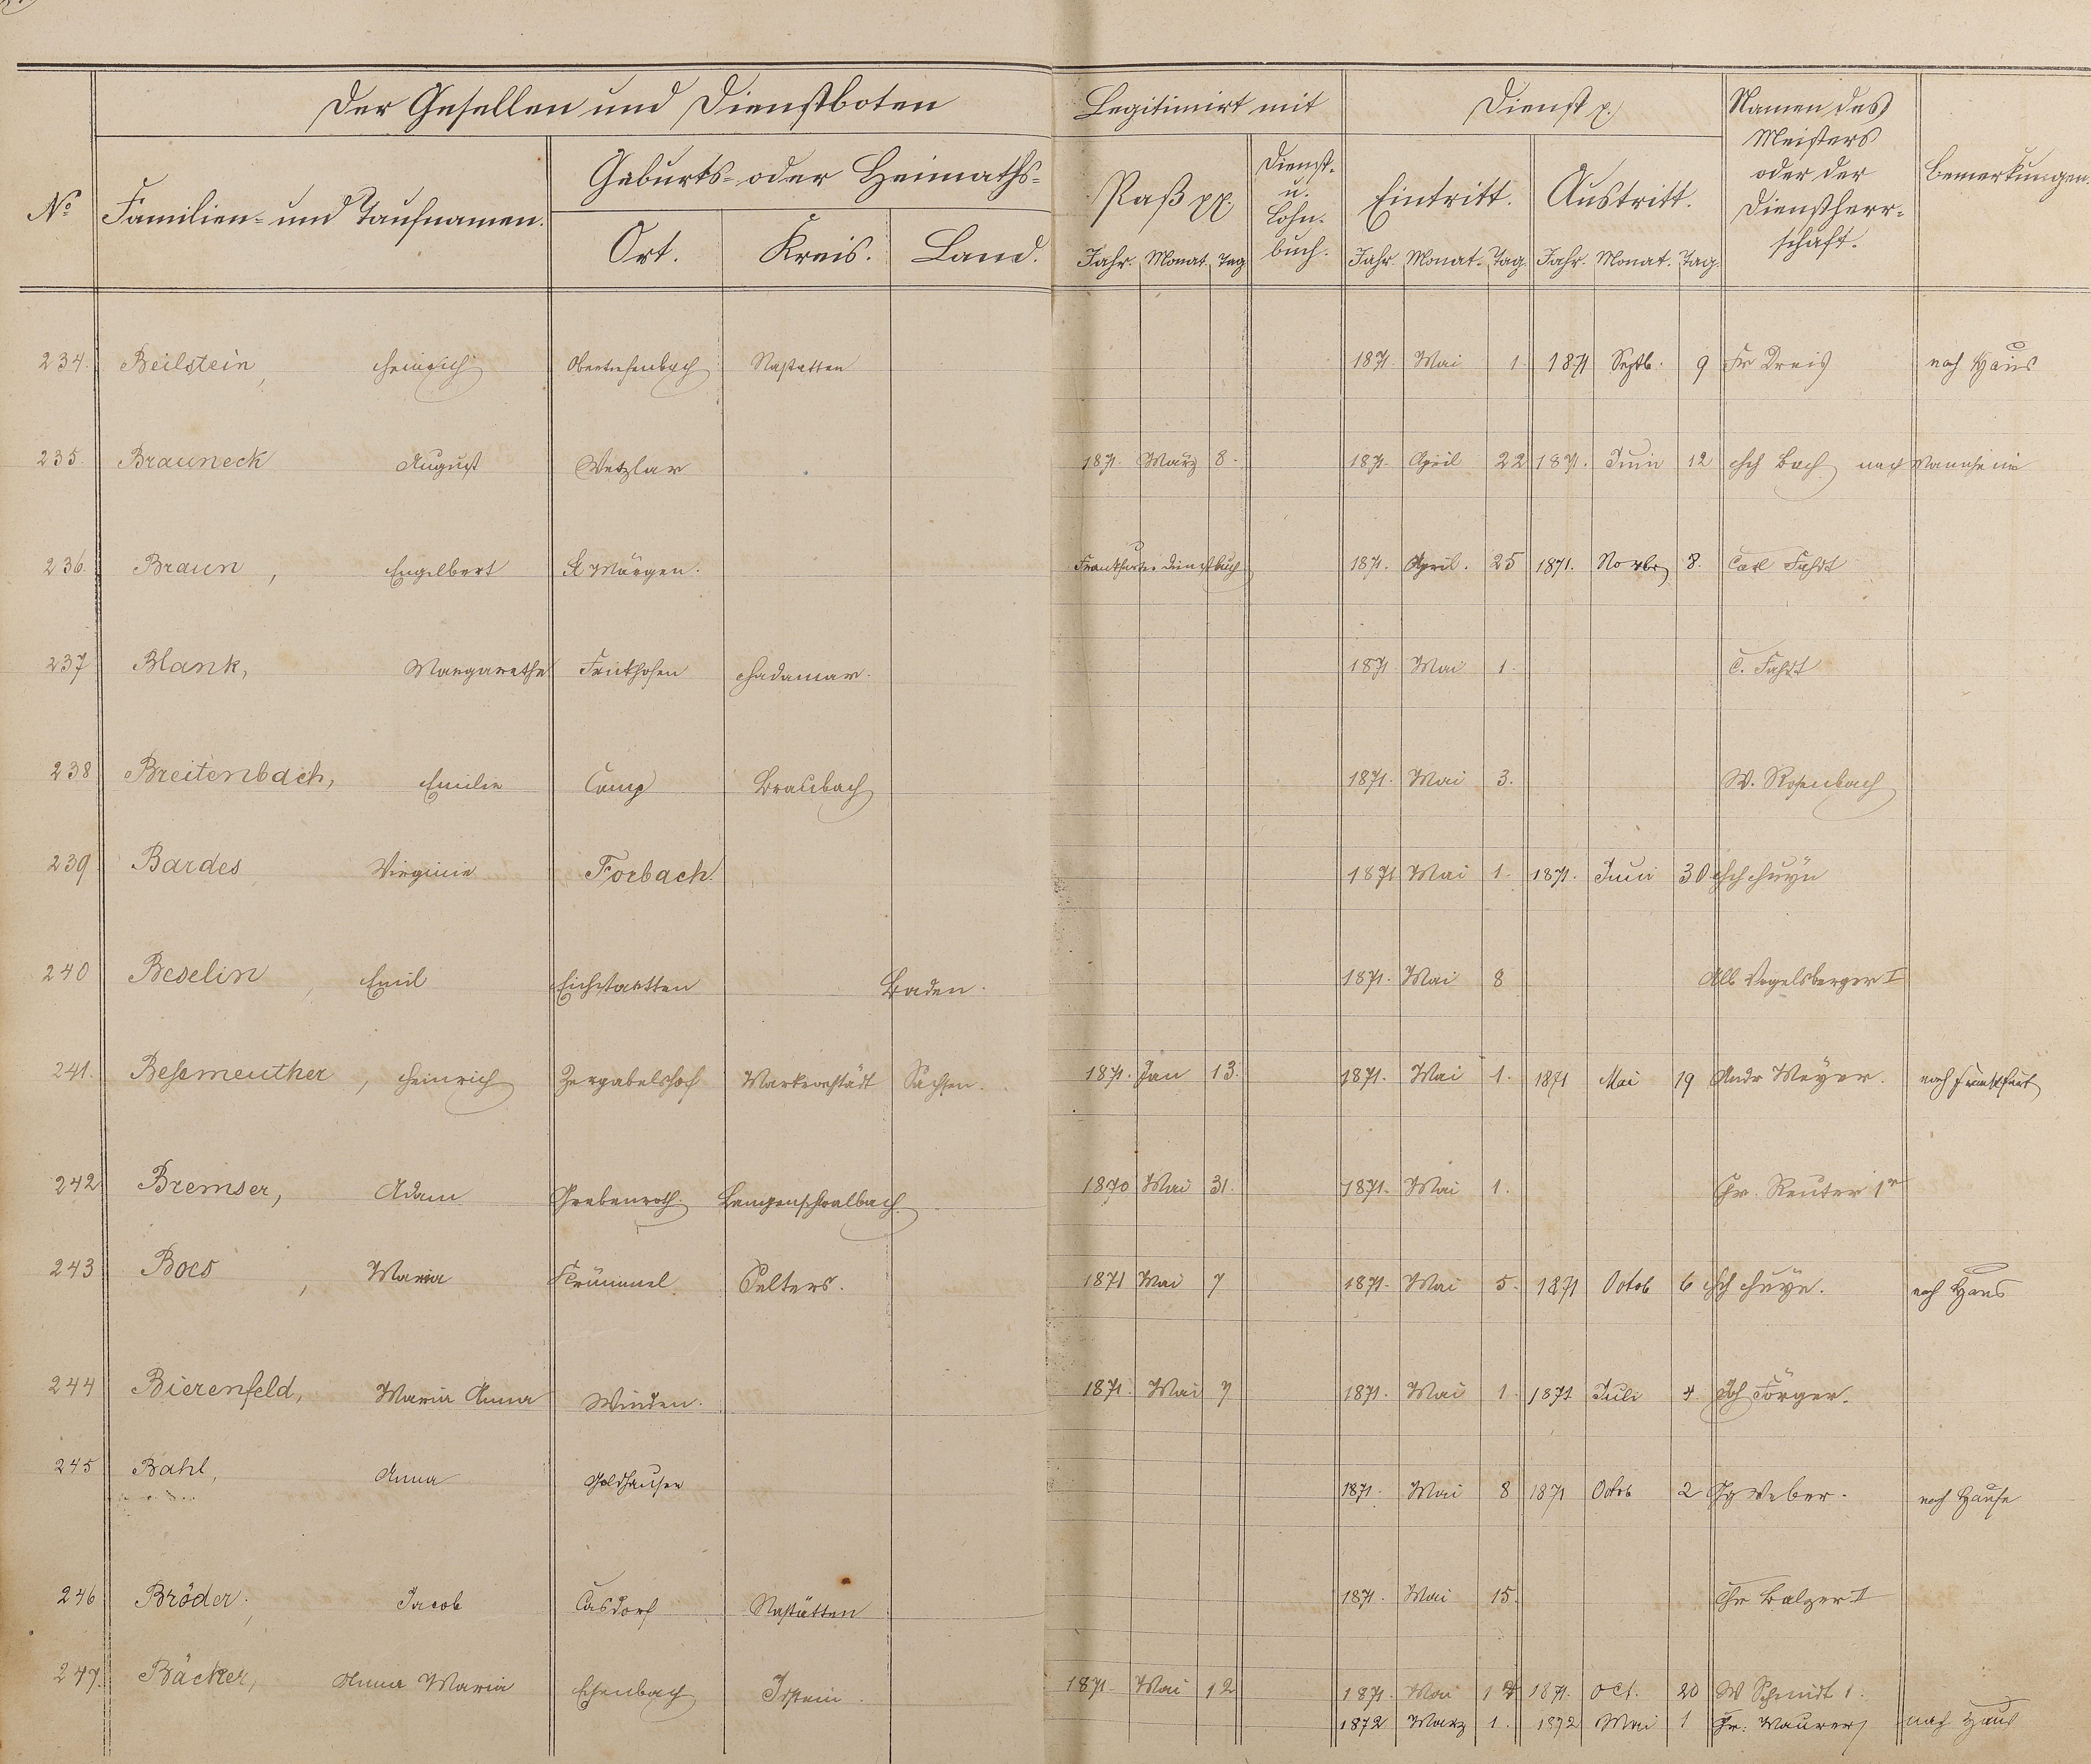 Der Gesellen und Dienstboten Legitimirt mit Dienst p. Namen des Meisters oder der Dienstherrschaft. Bemerkungen.
No Familien- und Taufnamen. Geburts- oder Heimaths- Paß pp. Dienst- u. Lohnbuch. Eintritt. Austritt.
Ort. Kreis. Land. Jahr. Monat. Tag Jahr. Monat. Tag. Jahr. Monat. Tag.
234. Beilstein, Heinrich Obertiefenbach Nastatten 1871. Mai 1. 1871 Septb. 9 Fr Dreis nach Haus
235. Brauneck August Wetzlar 1871. März 8. 1871. April 22 1871. Juni 12 Hch Bach nach Mannheim
236. Braun, Engelbert St Märgen. Frankfurter Dienstbuch 1871. April. 25 1871. Novbr 8. Carl Fahdt
237 Blank, Margarethe Frickhofen Hadamar. 1871. Mai 1. C. Fahdt
238 Breitenbach, Emilie Camp Braubach 1871. Mai 3. W. Rosenbach
239 Bardes Virginie Forbach. 1871 Mai 1. 1871. Juni 30 Hch Huyn
240 Beselin, Emil Eichstaetten Baden. 1871. Mai 8 Alb Vogelsberger I
241. Heinrich Sachsen. 1871. Jan 13. 1871. Mai 1. 1871 Mai 19 Andr Meyer. nach Frankfurt
242 Bremser, Adam Grebenroth. Langenschwalbach. 1870 Mai 31. 1871. Mai 1. Chr. Reuter 1r
243 Boes, Maria Krümmel Selters. 1871 Mai 7 1871. Mai 5. 1871 Octob 6 Hch Huyn. nach Haus
244 Bierenfeld, Maria Anna Winden. 1871. Mai 7 1871. Mai 1. 1871 Juli 4. Joh Förger.
245 Bahl, Anna Goldhausen 1871. Mai 8 1871 Octob 2 Weber. nach Hause
246 Bröder, Jacob Casdorf Nastätten 1871. Mai 15. Chr Balzer I
247. Bäcker, Anna Maria Eschenbach Idstein. 1871. Mai 12 1871. Mai 1871. Oct. 20 W Schmidt 1.
1872 Marz 1. 1872 Mai 1 Fr: Maurer nach Haus